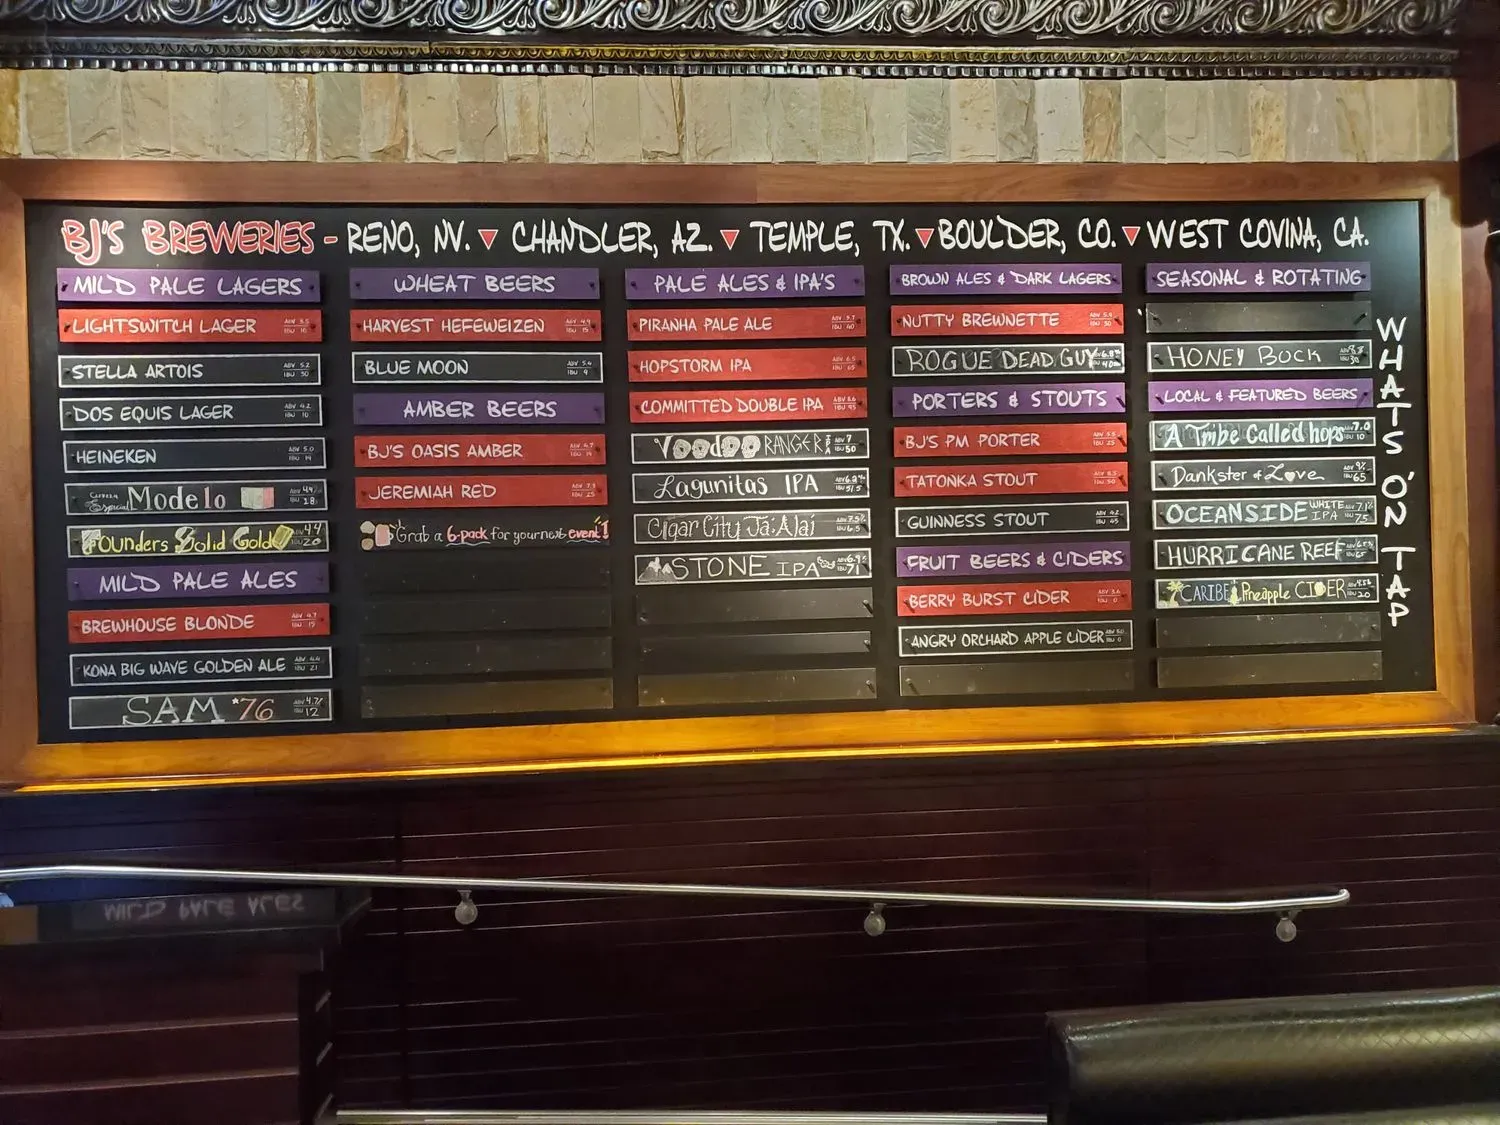 BJ'S BREWERIES - RENO, NV. ▼ CHANDLER, AZ. ▼ TEMPLE, TX. ▼ BOULDER, CO. ▼ WEST COVINA, CA.
MILD PALE LAGERS
LIGHTSWITCH LAGER ABV 3.5 IBU 10
STELLA ARTOIS ABV 5.2 IBU 30
DOS EQUIS LAGER ABV 4.2 IBU 10
HEINEKEN ABV 5.0 IBU 19
Cerveza Especial Modelo ABV 4.4 IBU 18
Founders Solid Gold ABV 4.4 IBU 20
MILD PALE ALES
BREWHOUSE BLONDE ABV 4.7 IBU 15
KONA BIG WAVE GOLDEN ALE ABV 4.4 IBU 21
SAM '76 ABV 4.7% IBU 12
WHEAT BEERS
HARVEST HEFEWEIZEN ABV 4.9 IBU 15
BLUE MOON ABV 5.4 IBU 9
AMBER BEERS
BJ'S OASIS AMBER ABV IBU
JEREMIAH RED ABV 7.3 IBU 25
Grab a 6-pack for your next event!
PALE ALES & IPA'S
PIRANHA PALE ALE ABV 5.7 IBU 40
HOPSTORM IPA ABV 6.5 IBU 65
COMMITTED DOUBLE IPA ABV 8.6 IBU 95
VOODOO RANGER IPA ABV 7 IBU 50
Lagunitas IPA ABV 6.2% IBU 51.5
Cigar City Jai Alai ABV 7.5% IBU
STONE IPA ABV 6.9% IBU 71
BROWN ALES & DARK LAGERS
NUTTY BREWNETTE ABV 5.9 IBU 30
ROGUE DEAD GUY 6.8% 40
PORTERS & STOUTS
BJ'S PM PORTER ABV 5.5 IBU 25
TATONKA STOUT ABV 8.5 IBU 50
GUINNESS STOUT ABV 4.2 IBU 45
FRUIT BEERS & CIDERS
BERRY BURST CIDER ABV IBU 0
ANGRY ORCHARD APPLE CIDER ABV 5.0 IBU 0
SEASONAL & ROTATING
HONEY BOCK ABV IBU
LOCAL & FEATURED BEERS
A Tribe Called hops ABV 7.0 IBU 10
Dankster of Love ABV 9% IBU 65
OCEANSIDE WHITE IPA ABV 7.1% IBU 75
HURRICANE REEF ABV IBU
CARIBE Pineapple CIDER ABV IBU 20
WHAT'S O'N TAP
MILD PALE ALES